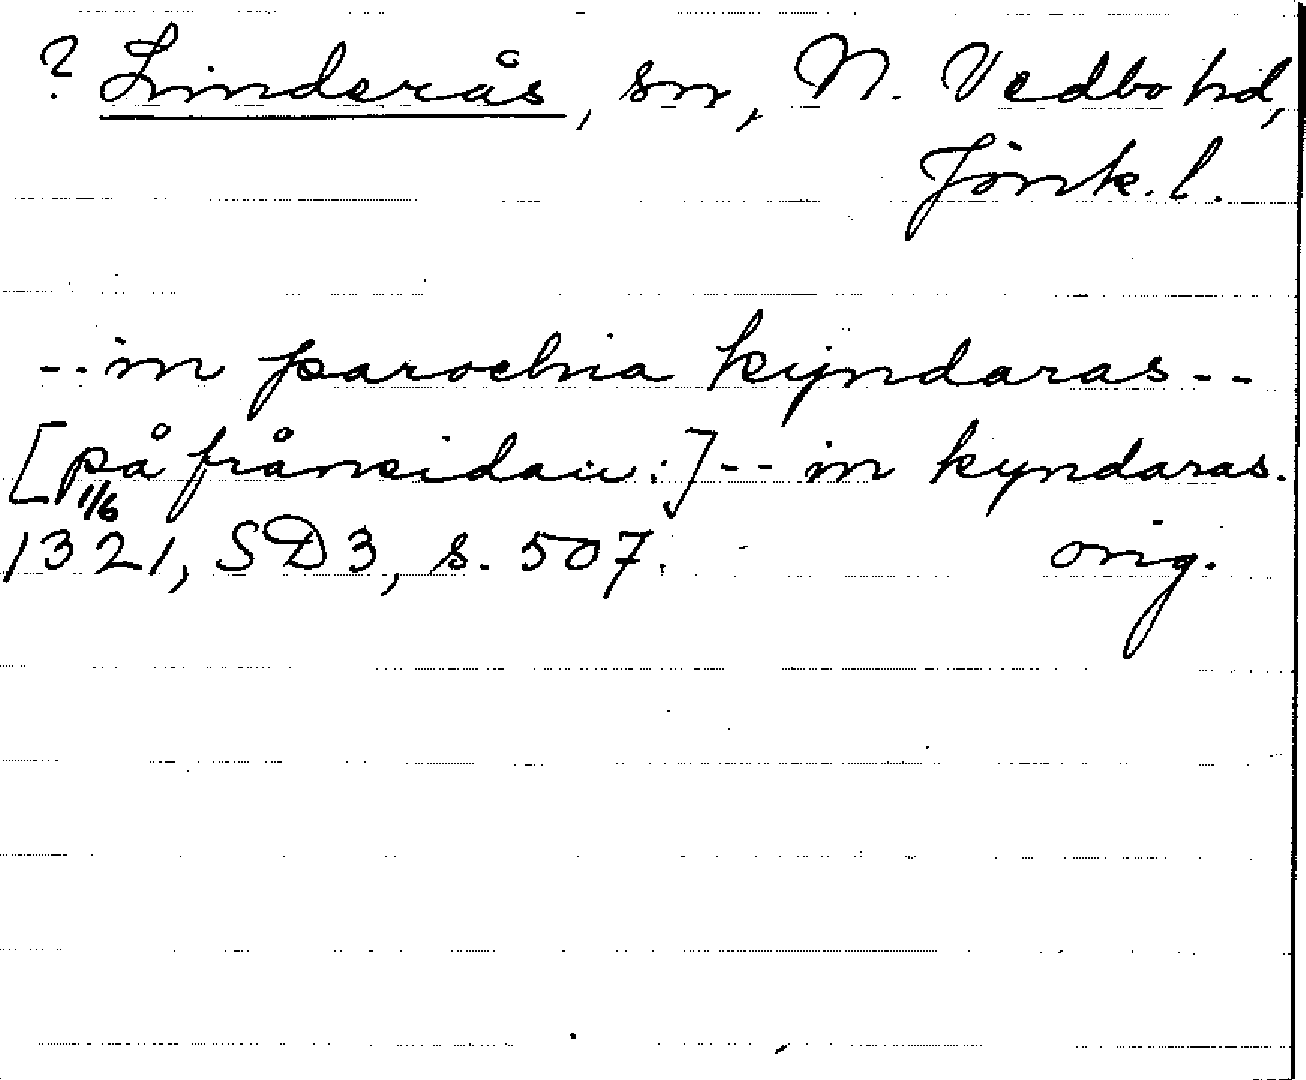 ? Linderås, sn, N. Vedbo hd,
Jönk. l.
-- in parochia kyndaras --
[på frånsidan:] -- in kyndaras.
1/6
1321, SD3, s. 507. orig.